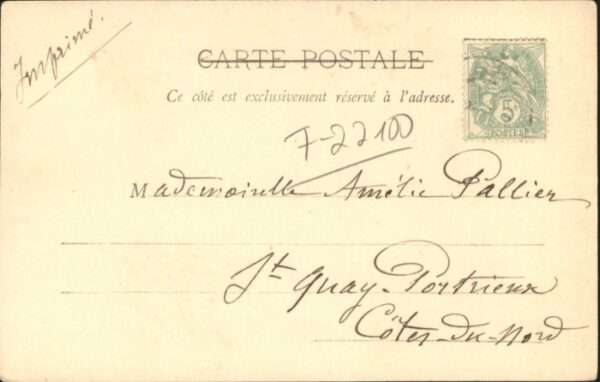 Imprimé.
CARTE POSTALE
Ce côté est exclusivement réservé à l'adresse.
5
POSTES
F-22100
Mademoiselle Amélie Pallier
St Quay-Portrieux
Côtes-du-Nord